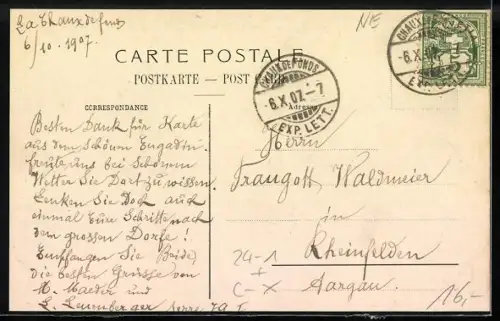 La Chaux de fonds
6/10. 1907.
NE
CARTE POSTALE
POSTKARTE — POST CARD
CHAUX-DE-FONDS
6.X.07.-7
EXP. LETT.
CHAUX-DE-FONDS
6.X.07.
EXP. LETT.
CORRESPONDANCE
Adresse
Besten Dank für Karte
aus dem schönen Engadin.
freute uns bei schönem
Wetter Sie Dort zu wissen.
Lenken Sie Doch auch
einmal Eure Schritte nach
dem grossen Dorfe!
Empfangen Sie (Beide)
Die besten Grüsse von
M. Maeder und
E. Leuenberger
Herrn
Traugott Waldmeier
in
Rheinfelden
Aargau.
24-1
+
C-X
16,-